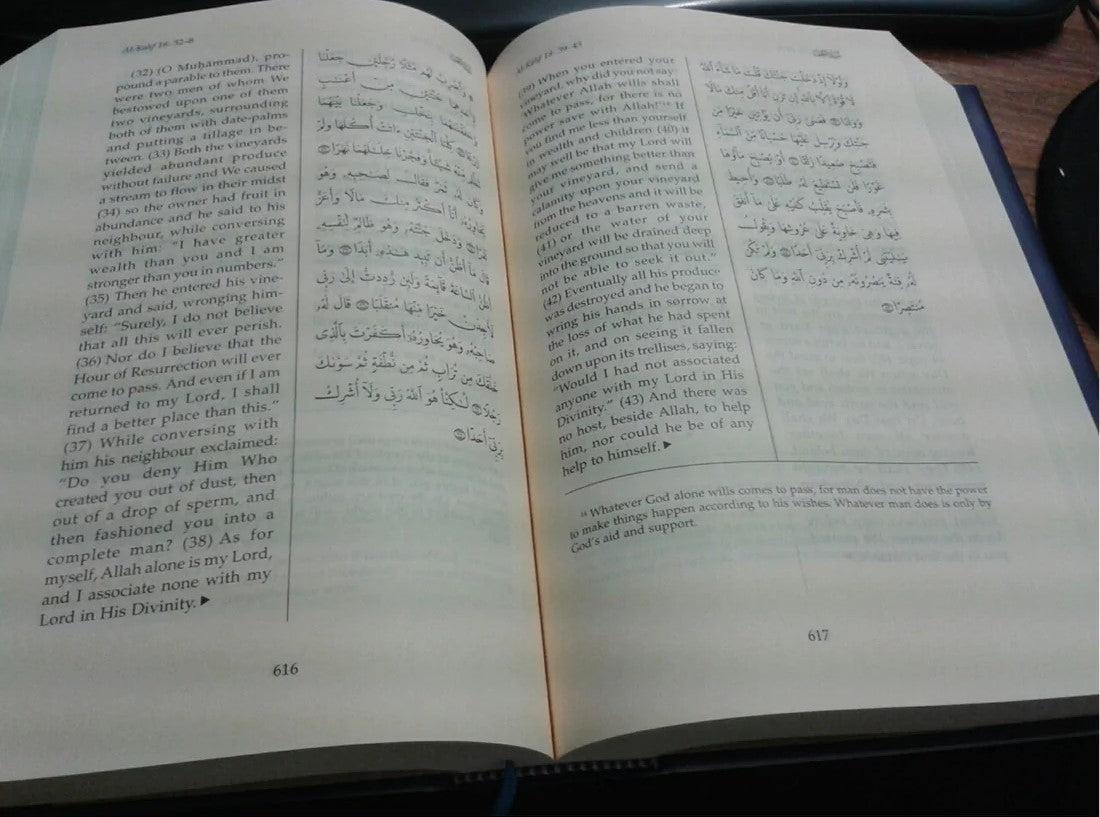 Al-Kahf 18: 32-8
(32) (O Muḥammad), pro-
pound a parable to them. There
were two men of whom We
bestowed upon one of them
two vineyards, surrounding
both of them with date-palms
and putting a tillage in be-
tween. (33) Both the vineyards
yielded abundant produce
without failure and We caused
a stream to flow in their midst
(34) so the owner had fruit in
abundance and he said to his
neighbour, while conversing
with him: "I have greater
wealth than you and I am
stronger than you in numbers."
(35) Then he entered his vine-
yard and said, wronging him-
self: "Surely, I do not believe
that all this will ever perish.
(36) Nor do I believe that the
Hour of Resurrection will ever
come to pass. And even if I am
returned to my Lord, I shall
find a better place than this."
(37) While conversing with
him his neighbour exclaimed:
"Do you deny Him Who
created you out of dust, then
out of a drop of sperm, and
then fashioned you into a
complete man? (38) As for
myself, Allah alone is my Lord,
and I associate none with my
Lord in His Divinity. ►
وَٱضْرِبْ لَهُم مَّثَلًا رَّجُلَيْنِ جَعَلْنَا
لِأَحَدِهِمَا جَنَّتَيْنِ مِنْ أَعْنَٰبٍ
وَحَفَفْنَٰهُمَا بِنَخْلٍ وَجَعَلْنَا بَيْنَهُمَا
زَرْعًا ٣٢ كِلْتَا ٱلْجَنَّتَيْنِ ءَاتَتْ أُكُلَهَا وَلَمْ
تَظْلِم مِّنْهُ شَيْـًٔا وَفَجَّرْنَا خِلَٰلَهُمَا نَهَرًا ٣٣
وَكَانَ لَهُۥ ثَمَرٌ فَقَالَ لِصَٰحِبِهِۦ وَهُوَ
يُحَاوِرُهُۥٓ أَنَا۠ أَكْثَرُ مِنكَ مَالًا وَأَعَزُّ
نَفَرًا ٣٤ وَدَخَلَ جَنَّتَهُۥ وَهُوَ ظَالِمٌ لِّنَفْسِهِۦ
قَالَ مَآ أَظُنُّ أَن تَبِيدَ هَٰذِهِۦٓ أَبَدًا ٣٥ وَمَآ
أَظُنُّ ٱلسَّاعَةَ قَآئِمَةً وَلَئِن رُّدِدتُّ إِلَىٰ رَبِّى
لَأَجِدَنَّ خَيْرًا مِّنْهَا مُنقَلَبًا ٣٦ قَالَ لَهُۥ
صَاحِبُهُۥ وَهُوَ يُحَاوِرُهُۥٓ أَكَفَرْتَ بِٱلَّذِى
خَلَقَكَ مِن تُرَابٍ ثُمَّ مِن نُّطْفَةٍ ثُمَّ سَوَّىٰكَ
رَجُلًا ٣٧ لَّٰكِنَّا۠ هُوَ ٱللَّهُ رَبِّى وَلَآ أُشْرِكُ
بِرَبِّىٓ أَحَدًا ٣٨
616
Al-Kahf 18: 39-43
(39) When you entered your
vineyard, why did you not say:
'Whatever Allah wills shall
come to pass, for there is no
power save with Allah!' If
you find me less than yourself
in wealth and children (40) it
may well be that my Lord will
give me something better than
your vineyard, and send a
calamity upon your vineyard
from the heavens and it will be
reduced to a barren waste,
(41) or the water of your
vineyard will be drained deep
into the ground so that you will
not be able to seek it out."
(42) Eventually all his produce
was destroyed and he began to
wring his hands in sorrow at
the loss of what he had spent
on it, and on seeing it fallen
down upon its trellises, saying:
"Would I had not associated
anyone with my Lord in His
Divinity." (43) And there was
no host, beside Allah, to help
him, nor could he be of any
help to himself. ►
وَلَوْلَآ إِذْ دَخَلْتَ جَنَّتَكَ قُلْتَ مَا شَآءَ ٱللَّهُ
لَا قُوَّةَ إِلَّا بِٱللَّهِ إِن تَرَنِ أَنَا۠ أَقَلَّ مِنكَ مَالًا
وَوَلَدًا ٣٩ فَعَسَىٰ رَبِّىٓ أَن يُؤْتِيَنِ خَيْرًا مِّن
جَنَّتِكَ وَيُرْسِلَ عَلَيْهَا حُسْبَانًا مِّنَ ٱلسَّمَآءِ
فَتُصْبِحَ صَعِيدًا زَلَقًا ٤٠ أَوْ يُصْبِحَ مَآؤُهَا
غَوْرًا فَلَن تَسْتَطِيعَ لَهُۥ طَلَبًا ٤١ وَأُحِيطَ
بِثَمَرِهِۦ فَأَصْبَحَ يُقَلِّبُ كَفَّيْهِ عَلَىٰ مَآ أَنفَقَ
فِيهَا وَهِىَ خَاوِيَةٌ عَلَىٰ عُرُوشِهَا وَيَقُولُ
يَٰلَيْتَنِى لَمْ أُشْرِكْ بِرَبِّىٓ أَحَدًا ٤٢ وَلَمْ تَكُن
لَّهُۥ فِئَةٌ يَنصُرُونَهُۥ مِن دُونِ ٱللَّهِ وَمَا كَانَ
مُنتَصِرًا ٤٣
Whatever God alone wills comes to pass, for man does not have the power
to make things happen according to his wishes. Whatever man does is only by
God's aid and support.
617